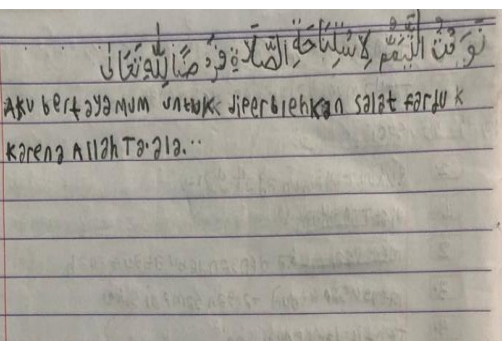 نَوَيْتُ التَّيَمُّمَ لِاسْتِبَاحَةِ الصَّلَاةِ فَرْضًا لِلّٰهِ تَعَالَى
Aku bertayamum untuk diperblehkan salat fardu k
karena Allah Ta'ala...